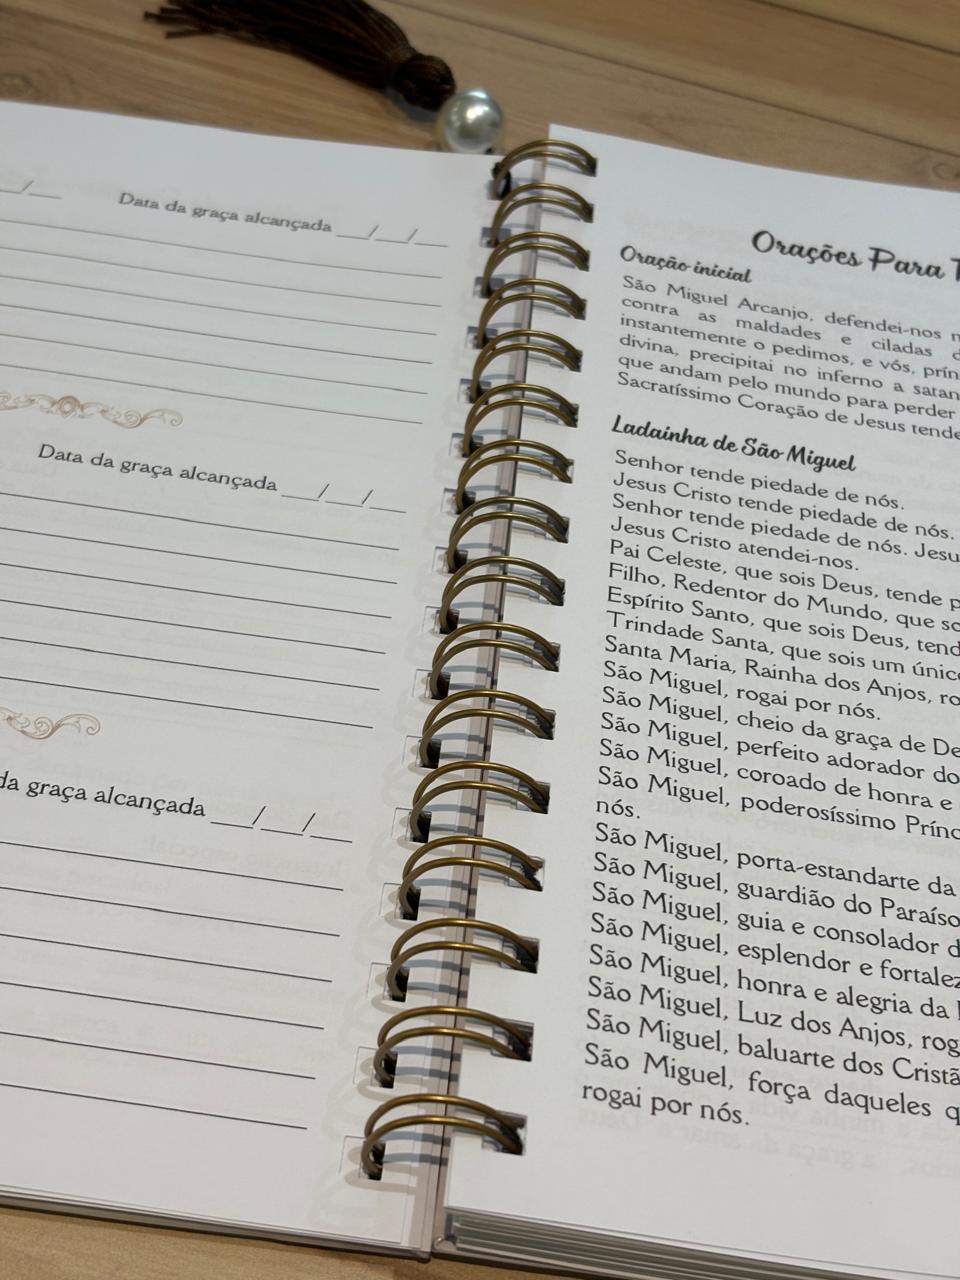 __/__
Data da graça alcançada __/__/__
Data da graça alcançada __/__/__
da graça alcançada __/__/__
Orações Para
Oração inicial
São Miguel Arcanjo, defendei-nos
contra as maldades e ciladas
instantemente o pedimos, e vós,
divina, precipitai no inferno a
que andam pelo mundo para perder
Sacratíssimo Coração de Jesus tende
Ladainha de São Miguel
Senhor tende piedade de nós.
Jesus Cristo tende piedade de nós.
Senhor tende piedade de nós.
Jesus Cristo atendei-nos.
Pai Celeste, que sois Deus, tende
Filho, Redentor do Mundo, que
Espírito Santo, que sois Deus,
Trindade Santa, que sois um
Santa Maria, Rainha dos Anjos,
São Miguel, rogai por nós.
São Miguel, cheio da graça de
São Miguel, perfeito adorador do
São Miguel, coroado de honra e
São Miguel, poderosíssimo
nós.
São Miguel, porta-estandarte da
São Miguel, guardião do Paraíso
São Miguel, guia e consolador
São Miguel, esplendor e
São Miguel, honra e alegria da
São Miguel, Luz dos Anjos,
São Miguel, baluarte dos
São Miguel, força daqueles
rogai por nós.